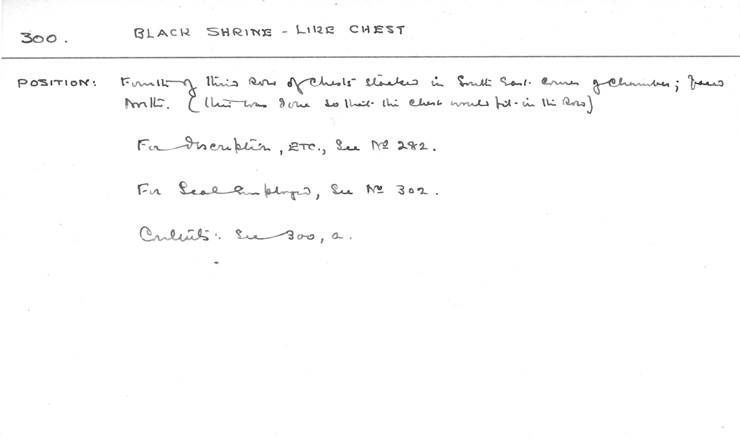 300.
BLACK SHRINE - LIKE CHEST
POSITION: Fourth of third Row of Chests stacked in South East corner of Chamber; faced
North. (This was done so that the chest would fit in the Row)
For Description, ETC., See No 282.
For Seal Employed, See No 302.
Contents: See 300, a.